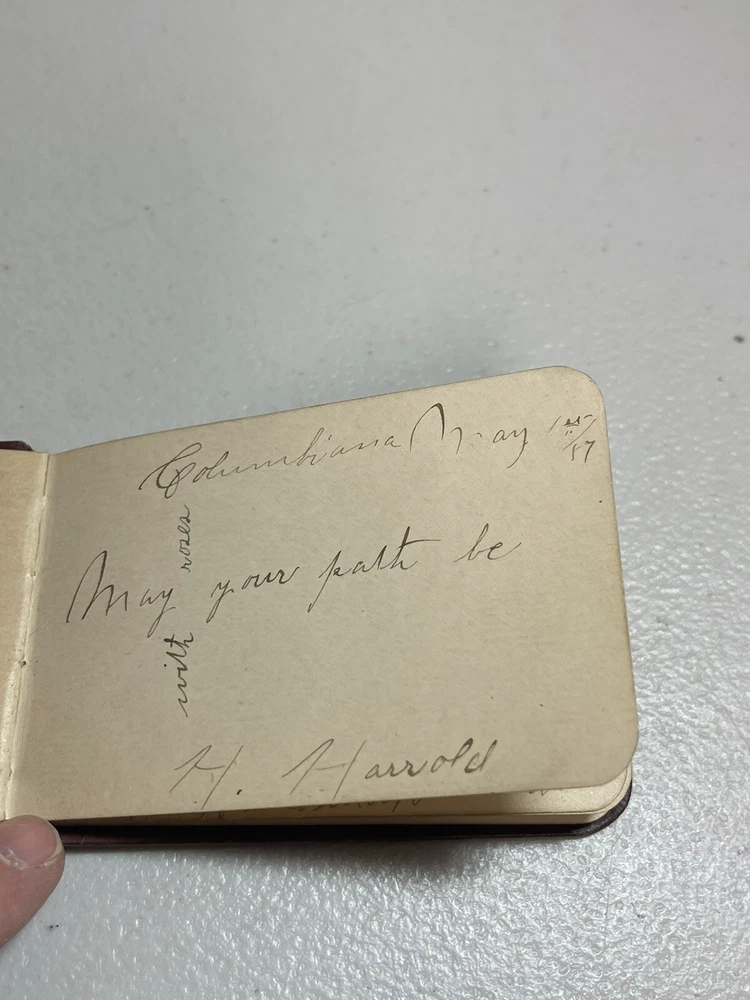 Columbiana May 1st
May your path be
with roses
H. Harrold